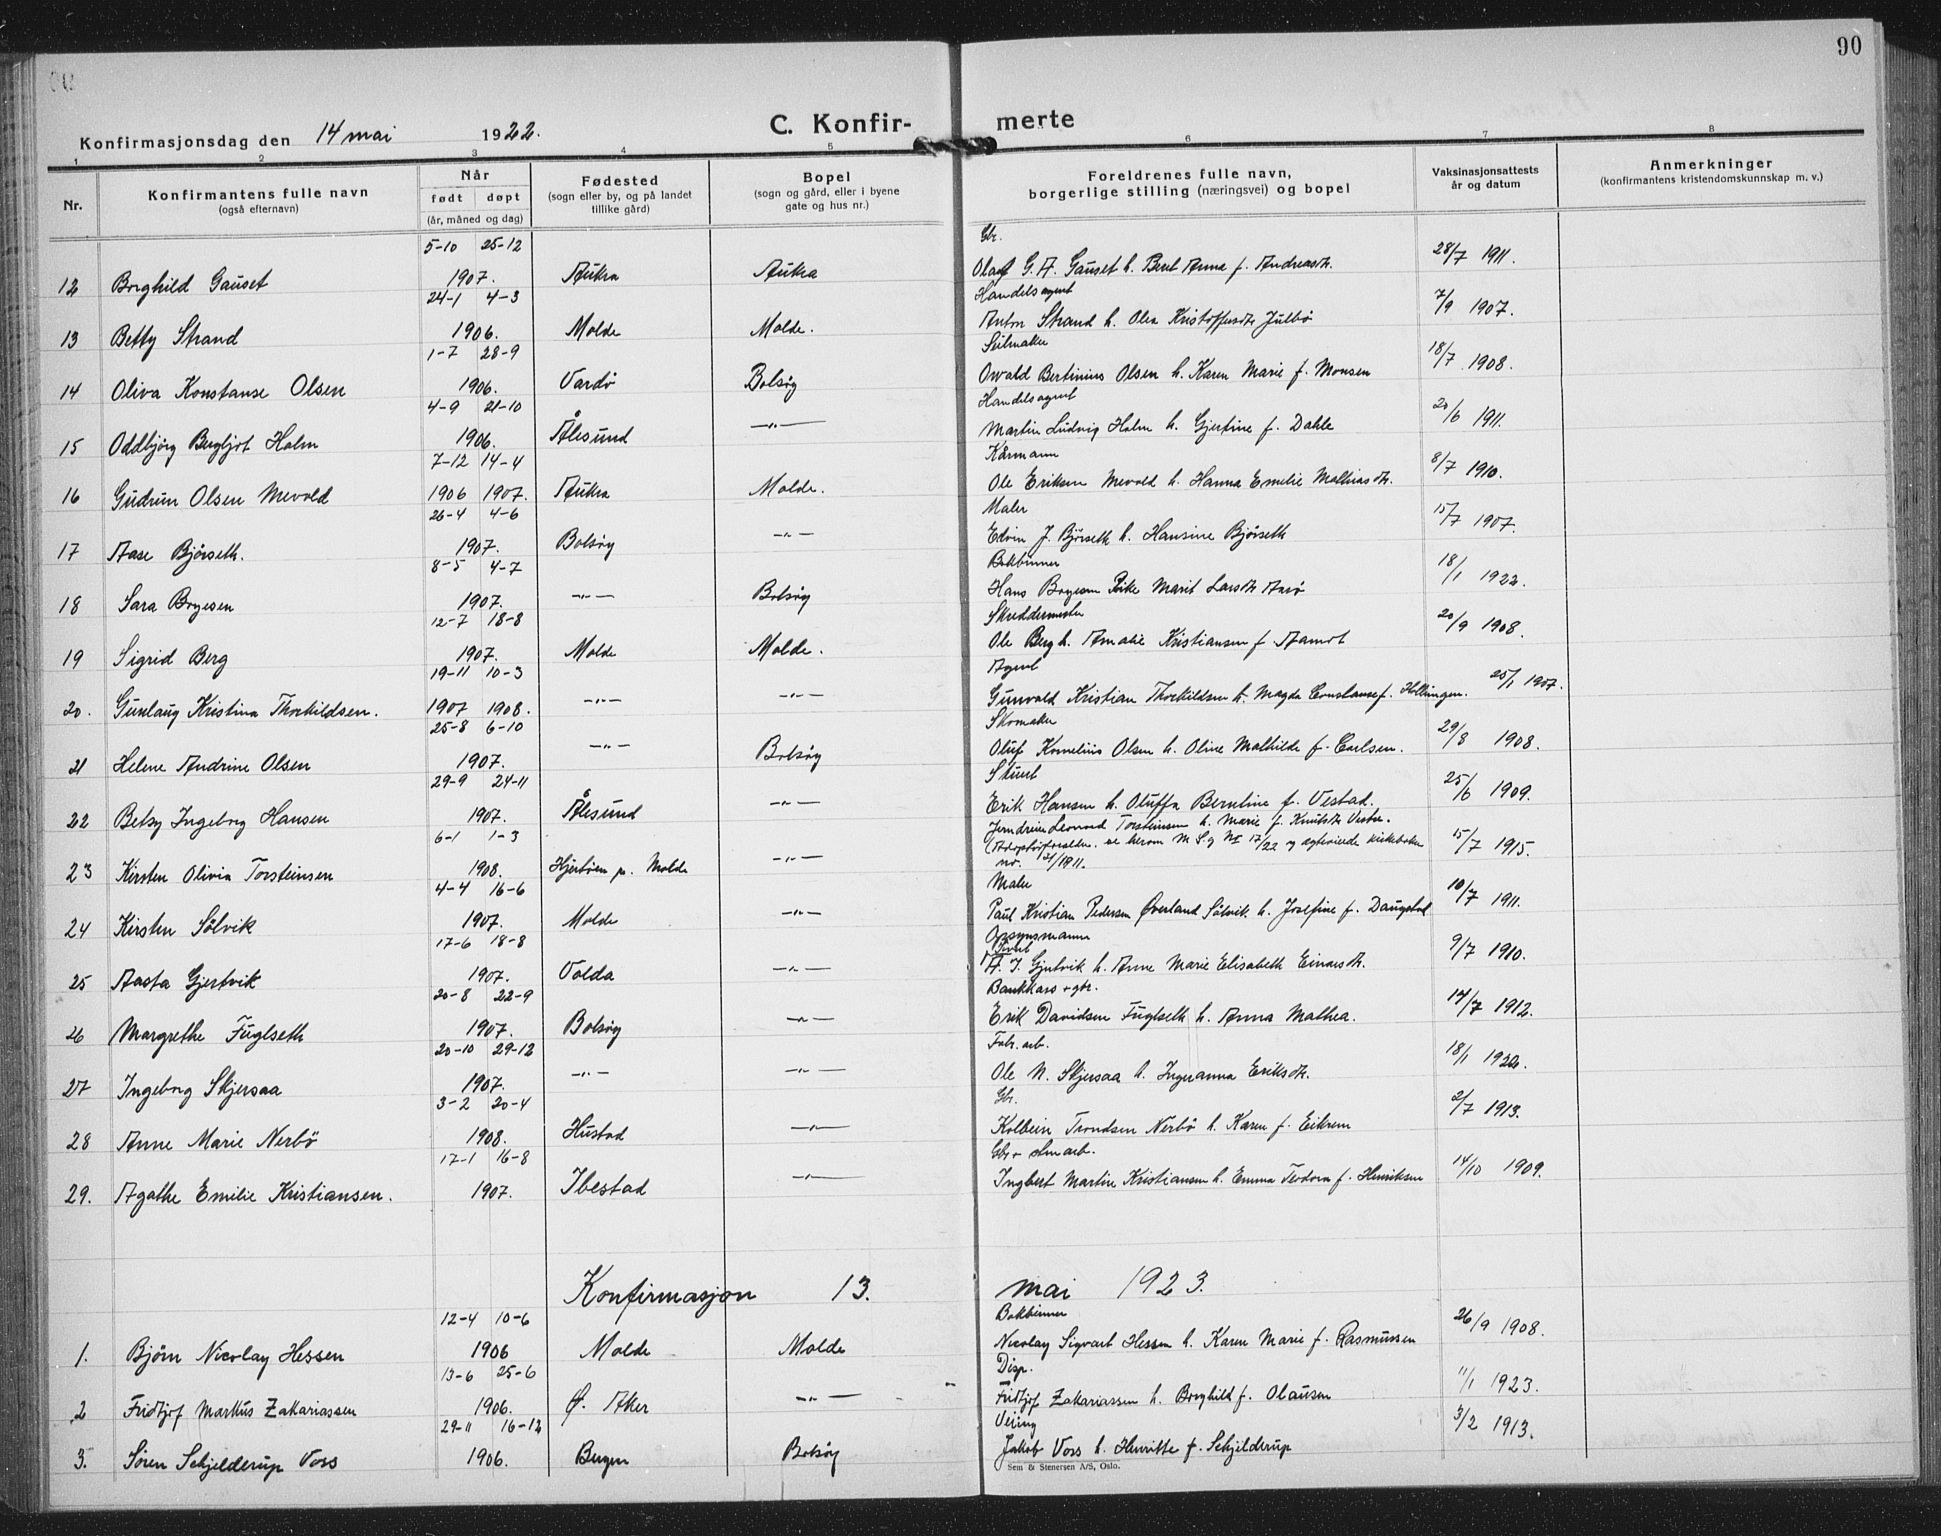 90
Konfirmasjonsdag den 14 mai 1922.
C. Konfir- merte
1 2 3 4 5 6 7 8
Nr. Konfirmantens fulle navn (også efternavn) Når født døpt (år, måned og dag) Fødested (sogn eller by, og på landet tillike gård) Bopel (sogn og gård, eller i byene gate og hus nr.) Foreldrenes fulle navn, borgerlige stilling (næringsvei) og bopel Vaksinasjonsattests år og datum Anmerkninger (konfirmantens kristendomskunnskap m. v.)
5-10 25-12 Gbr.
12 Borghild Gauset 1907. Aukra Aukra Olaf G. A. Gauset h. Beret Anna f. Andreasdtr. 28/7 1911.
24-1 4-3 Handelsagent
13 Betty Strand 1906. Molde Molde. Anton Strand h. Olea Kristoffersdtr Julbø 7/9 1907.
1-7 28-9 Seilmaker
14 Oliva Konstanse Olsen 1906. Vardø Bolsøy Osvald Bertinius Olsen h. Karen Marie f. Monsen 18/7 1908.
4-9 21-10 Handelsagent
15 Oddbjørg Bergljot Holm 1906. Ålesund -"- Martin Ludvig Holm h. Gjertine f. Dahle 20/6 1911.
7-12 14-4 Kårmann
16 Gudrun Olsen Mevold 1906 1907. Aukra Molde. Ole Eriksen Mevold h. Hanna Emelie Mathiasdtr. 8/7 1910.
26-4 4-6 Maler
17 Aase Bjørseth. 1907. Bolsøy -"- Edvin J. Bjørseth h. Hansine Bjørseth 15/7 1907.
8-5 4-7 Bokbinner
18 Sara Boyesen 1907. -"- Bolsøy Hans Boyesen Pike Marit Larsdtr Aarø 18/1 1922.
12-7 18-8 Skreddermester
19 Sigrid Berg 1907. Molde Molde. Ole Berg h. Amalie Kristiansen f. Aamot 20/9 1908.
19-11 10-3 Agent
20. Gunlaug Kristina Thorkildsen. 1907 1908. -"- -"- Gunvald Kristian Thorkildsen h. Magda Constanse f. Hollingen. 25/1 1907.
25-8 6-10 Skomaker
21 Helene Andrine Olsen 1907. -"- Bolsøy Oluf Kornelius Olsen h. Oline Mathilde f. Carlsen. 29/8 1908.
29-9 24-11 Stuert
22 Betsy Ingeborg Hansen 1907. Ålesund -"- Erik Hansen h. Oluffa Berntine f. Vestad. 25/6 1909.
6-1 1-3 Jerndreier Leonard Torsteinsen h. Marie f. Knutsdtr Vestre.
23 Kirsten Olivia Torsteinsen 1908. Hjertøen pr. Molde -"- (Adoptivforeldre. se herom M S g NI 17/22 og ministerielle kirkeboken nr. 21/1911. 15/7 1915.
4-4 16-6 Maler
24 Kirsten Sølvik 1907. Molde -"- Paul Kristian Pedersen Øverland Sølvik h. Josefine f. Daugstad 10/7 1911.
17-6 18-8 Opsynsmann
25 Aasta Gjertvik 1907. Volda -"- A. J. Gjertvik h. Anne Marie Elisabeth Einarsdtr. 9/7 1910.
20-8 22-9 Bankkass + gbr.
26 Margrethe Fuglseth 1907. Bolsøy -"- Erik Davidsen Fuglseth h. Anna Mathea. 14/7 1912.
20-10 29-12 Fabr. arb.
27 Ingeborg Skjersaa 1907. -"- -"- Ole N. Skjersaa h. Ingeranna Eriksdtr. 18/1 1922.
3-2 20-4 Gbr.
28 Anne Marie Nerbø 1908. Hustad -"- Kolbein Trondsen Nerbø h. Karen f. Eikrem 2/7 1913.
17-1 16-8 Gbr + stenarb.
29. Agathe Emilie Kristiansen. 1907. Ibestad -"- Ingbert Martin Kristiansen h. Emma Teodora f. Henriksen 14/10 1909.
Konfirmasjon 13. mai 1923.
12-4 10-6 Bokbinner
1. Bjørn Nicolay Hessen 1906 Molde Molde Nicolay Sigvart Hessen h. Karen Marie f. Rasmussen 26/9 1908.
13-6 25-6 Disp.
2 Fridtjof Markus Zakariassen 1906. Ø. Aker -"- Fridtjof Zakariassen h. Borghild f. Olausen 11/1 1923.
29-11 16-12
3. Søren Schjelderup Voss 1906. Bergen Bolsøy Jakob Voss h. Henritte f. Schjelderup 3/2 1913.
Sem & Stenersen A/S, Oslo.